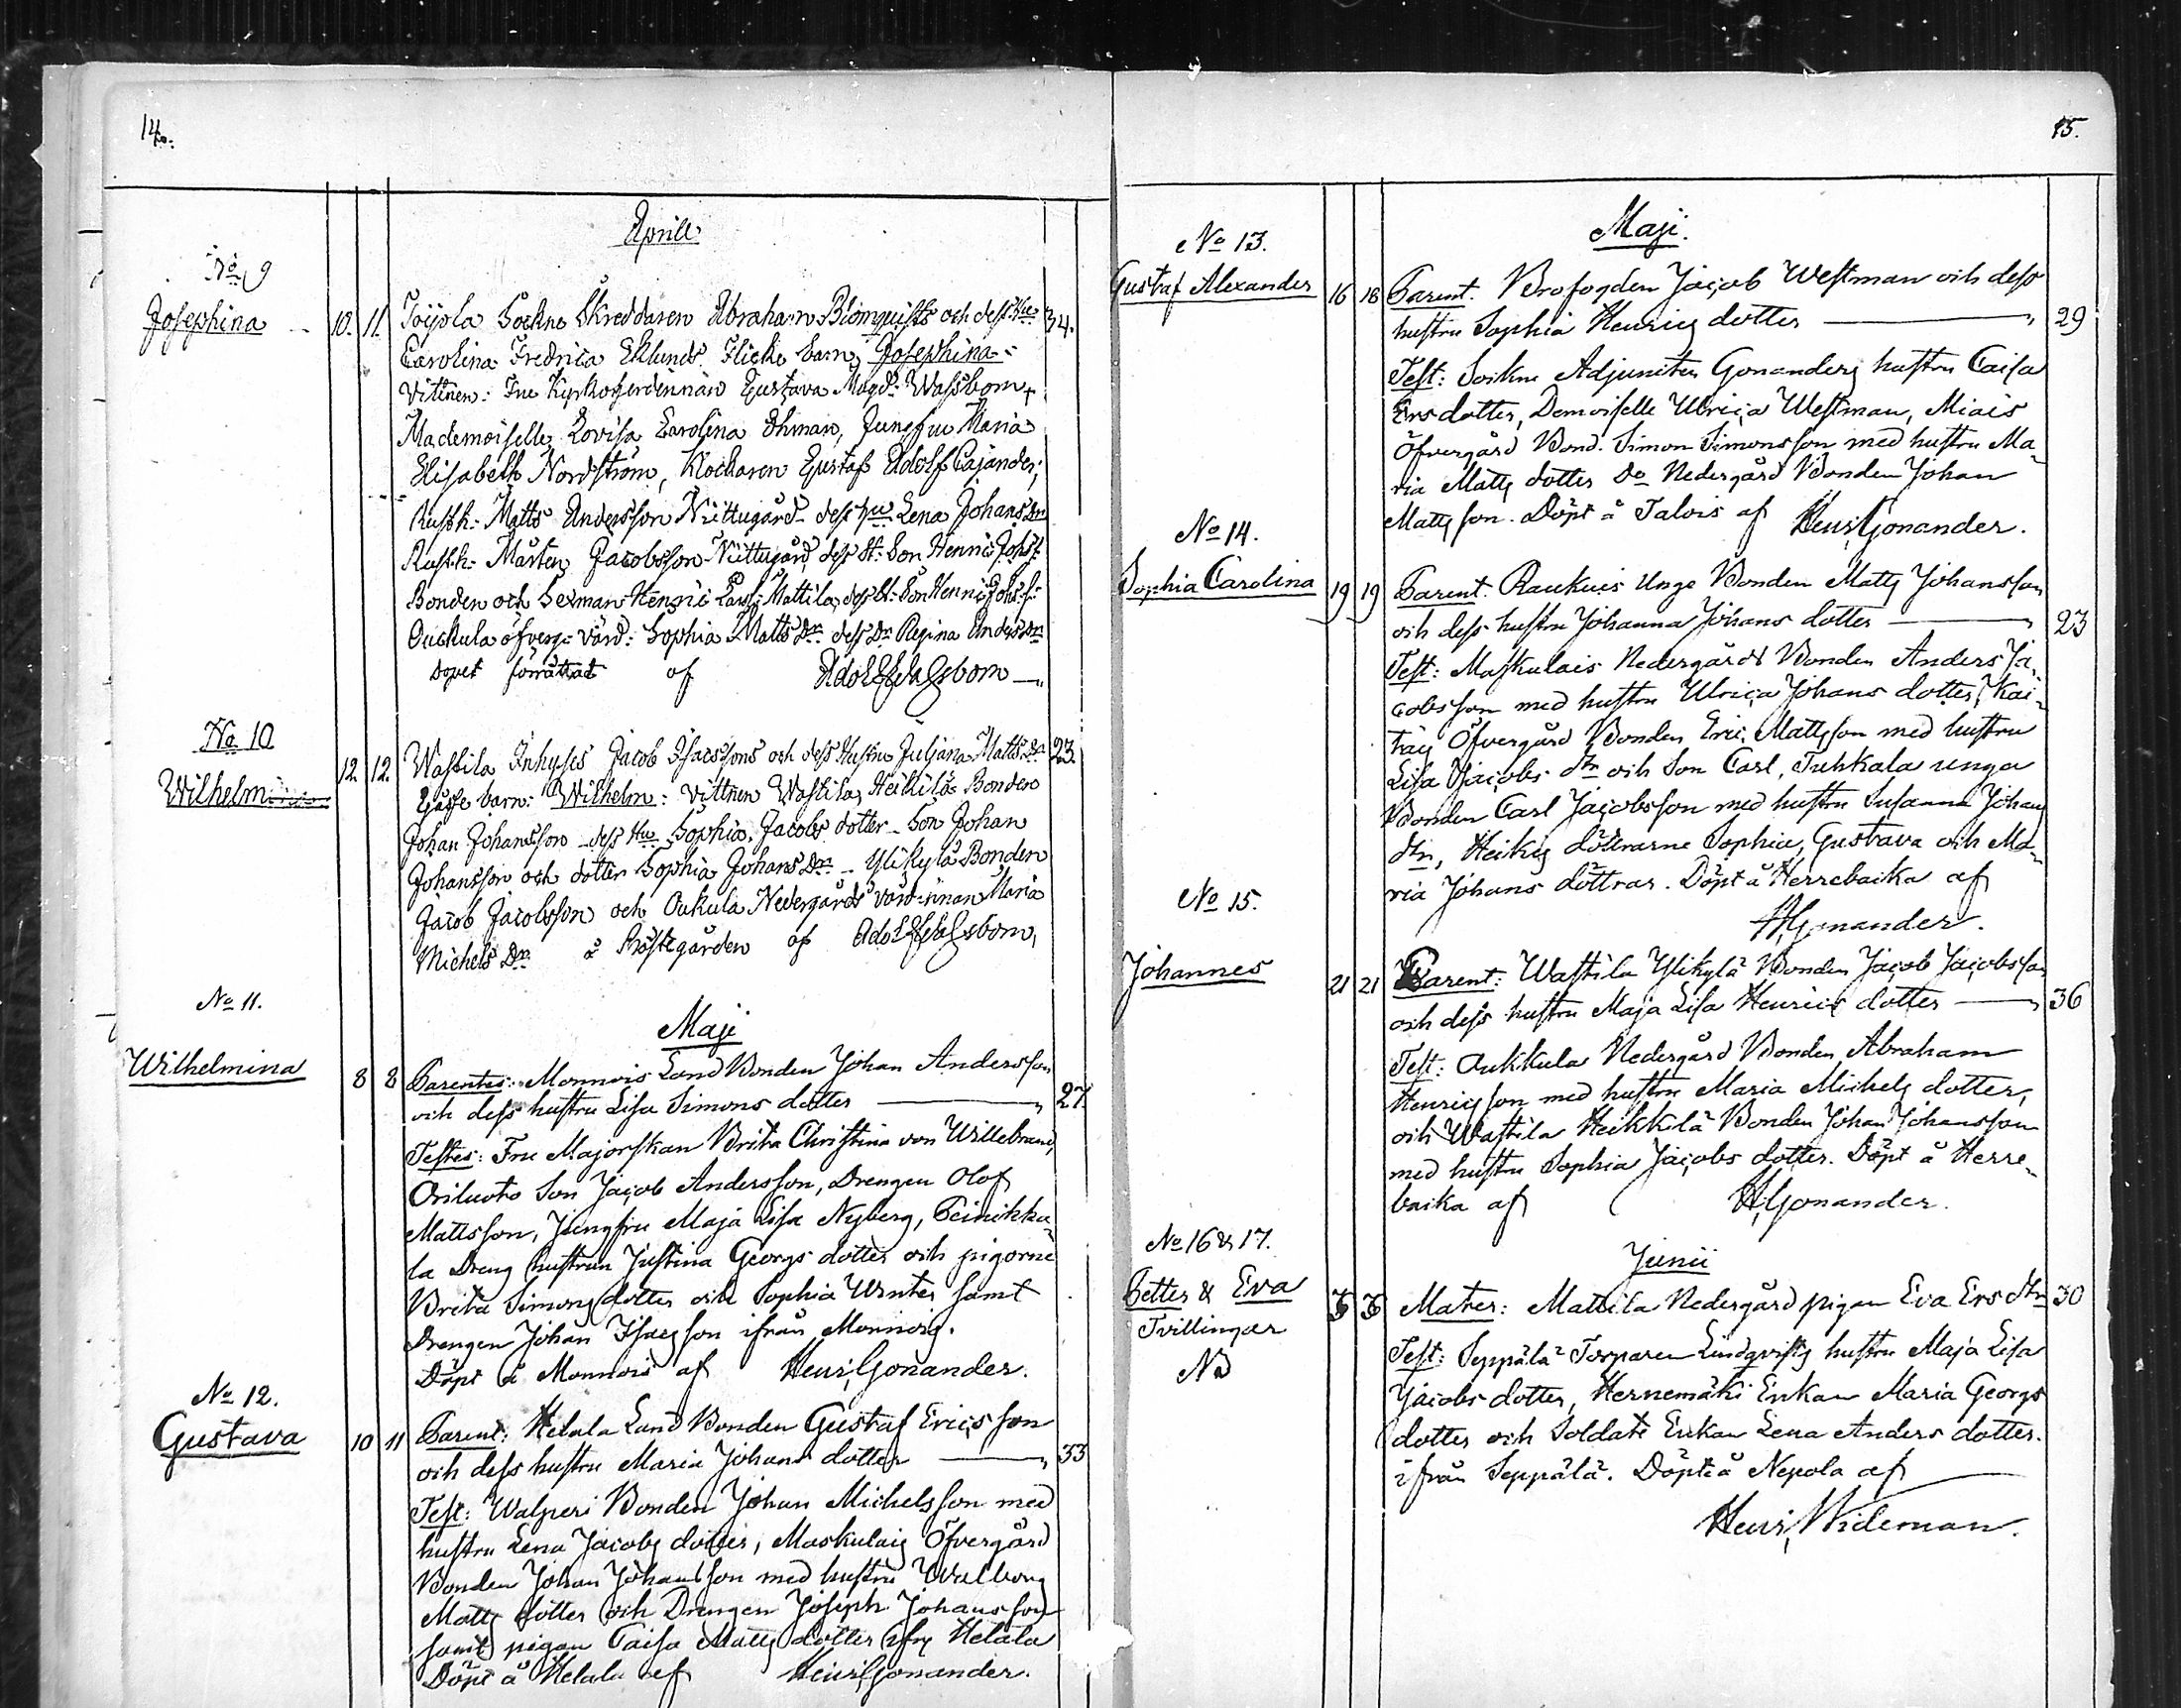 14.
Aprill
No 9
Josephina
10. 11. Toijola Sockne Skreddaren Abraham Blomquists och dess Hu 34.
Carolina Fredrica Eklunds Flicke barn Josephina
Vittnen: Fru Kyrkoherdinnan Gustava Magd: Wassbom
Mademoiselle Lovisa Carolina Öhman, Jungfru Maria
Elisabeth Nordström, Klockaren Gustaf Adolf Cajander,
Rusth: Matts Andersson Nittugård dess Hu Lena Johans Dr
Rusth: Mårten Jacobsson Nittugård, dess St: Son Henric Johss:
Bonden och Sexman Henric Mattila, dess St: Son Henric Johs: S:
Ouckula öfverg: värd: Sophia Matts Dr dess Dr Regina Anders Dr
Dopet förrättat af Adolf
No 10
Wilhelm
12. 12. Wastila Inhyses Jacob Isacssons och dess Hustru Juliana Matts Dr 23.
Gosse barn: Wilhelm: Vittnen Wastila Heikilä Bonden
Johan Johansson dess Hu Sophia Jacobs dotter Son Johan
Johansson och dotter Sophia Johans Dr Ylikylä Bonden
Jacob Jacobsson och Oukula Nedergårds värdinnan Maria
Michels Dr å Prästegården af Adolf
Maji
No 11.
Wilhelmina
8 8 Parentes: Monnois Land Bonden Johan Andersson
och dess hustru Lisa Simons dotter 27.
Testes: Fru Majorskan Brita Christina von Willebrand,
Oriluoto Son Jacob Andersson, Drengen Olof
Mattsson, Jungfru Maja Lisa Nyberg, Peinikka-
la Dreng hustrun Justina Georgs dotter och pigorne
Brita Simons dotter och Sophia Winter samt
Drengen Johan Isacsson ifrån Monnois.
Döpt å Monnois af Henr: Gonander.
No 12.
Gustava
10 11 Parent: Helala Land Bonden Gustaf Ericsson
och dess hustru Maria Johans dotter 33
Test: Walperi Bonden Johan Michelsson med
hustru Lena Jacobs dotter, Maskulais Öfvergård
Bonden Johan Johansson med hustru Walborg
Matts dotter och Drengen Joseph Johansson
samt pigan Caisa Matts dotter ifrn Helala
Döpt å Helala af Henr: Gonander.
15.
Maji.
No 13.
Gustaf Alexander
16 18 Parent. Brofogden Jacob Westman och dess
hustru Sophia Henrics dotter 29
Test: Sockne Adjuncten Gonanders hustru Caisa
Ersdotter, Demoiselle Ulrica Westman, Miais
Öfvergård Bond. Simon Simonsson med hustru Ma-
ria Matts dotter Do Nedergård Bonden Johan
Mattsson. Döpt å Talois af Henr: Gonander.
No 14.
Sophia Carolina
19 19 Parent. Raukuis Unge Bonden Matts Johansson
och dess hustru Johanna Johans dotter 23
Test: Maskulais Nedergårds Bonden Anders Ja-
cobsson med hustru Ulrica Johans dotter, Kai-
träj Öfvergård Bonden Eric Mattsson med hustru
Lisa Jacobs dtr och Son Carl, Tuhkala unga
Bonden Carl Jacobsson med hustru Susanna Johans
dtr, Heikis döttrarne Sophia, Gustava och Ma-
ria Johans döttrar. Döpt å Herrebacka af
H. Gonander.
No 15.
Johannes
21 21 Parent: Wastila Ylikylä Bonden Jacob Jacobsson
och dess hustru Maja Lisa Henrics dotter 36
Test: Aukkula Nedergård Bonden Abraham
Henricsson med hustru Maria Michels dotter,
och Wastila Heikkilä Bonden Johan Johansson
med hustru Sophia Jacobs dotter. Döpt å Herre-
backa af H. Gonander.
Junii
No 16 & 17.
Petter & Eva
Tvillingar
NB
3 3 Mater: Mattila Nedergård pigan Eva Ers dtr 30
Test: Seppälä Torparen Lindqvists hustru Maja Lisa
Jacobs dotter, Hernemäki Enkan Maria Georgs
dotter och Soldats Enkan Lena Anders dotter.
ifrån Seppälä. Döpt å Nepola af
Henr: Wideman.